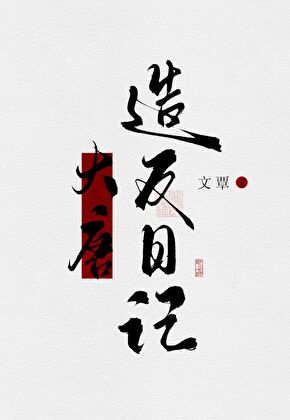 大唐
造反日记
文覃 著